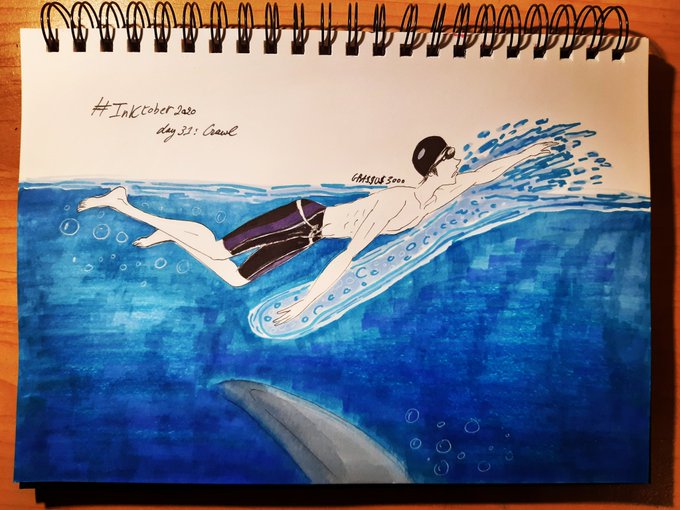 #Inktober2020
day 33: Crawl
GRASSUS 3000